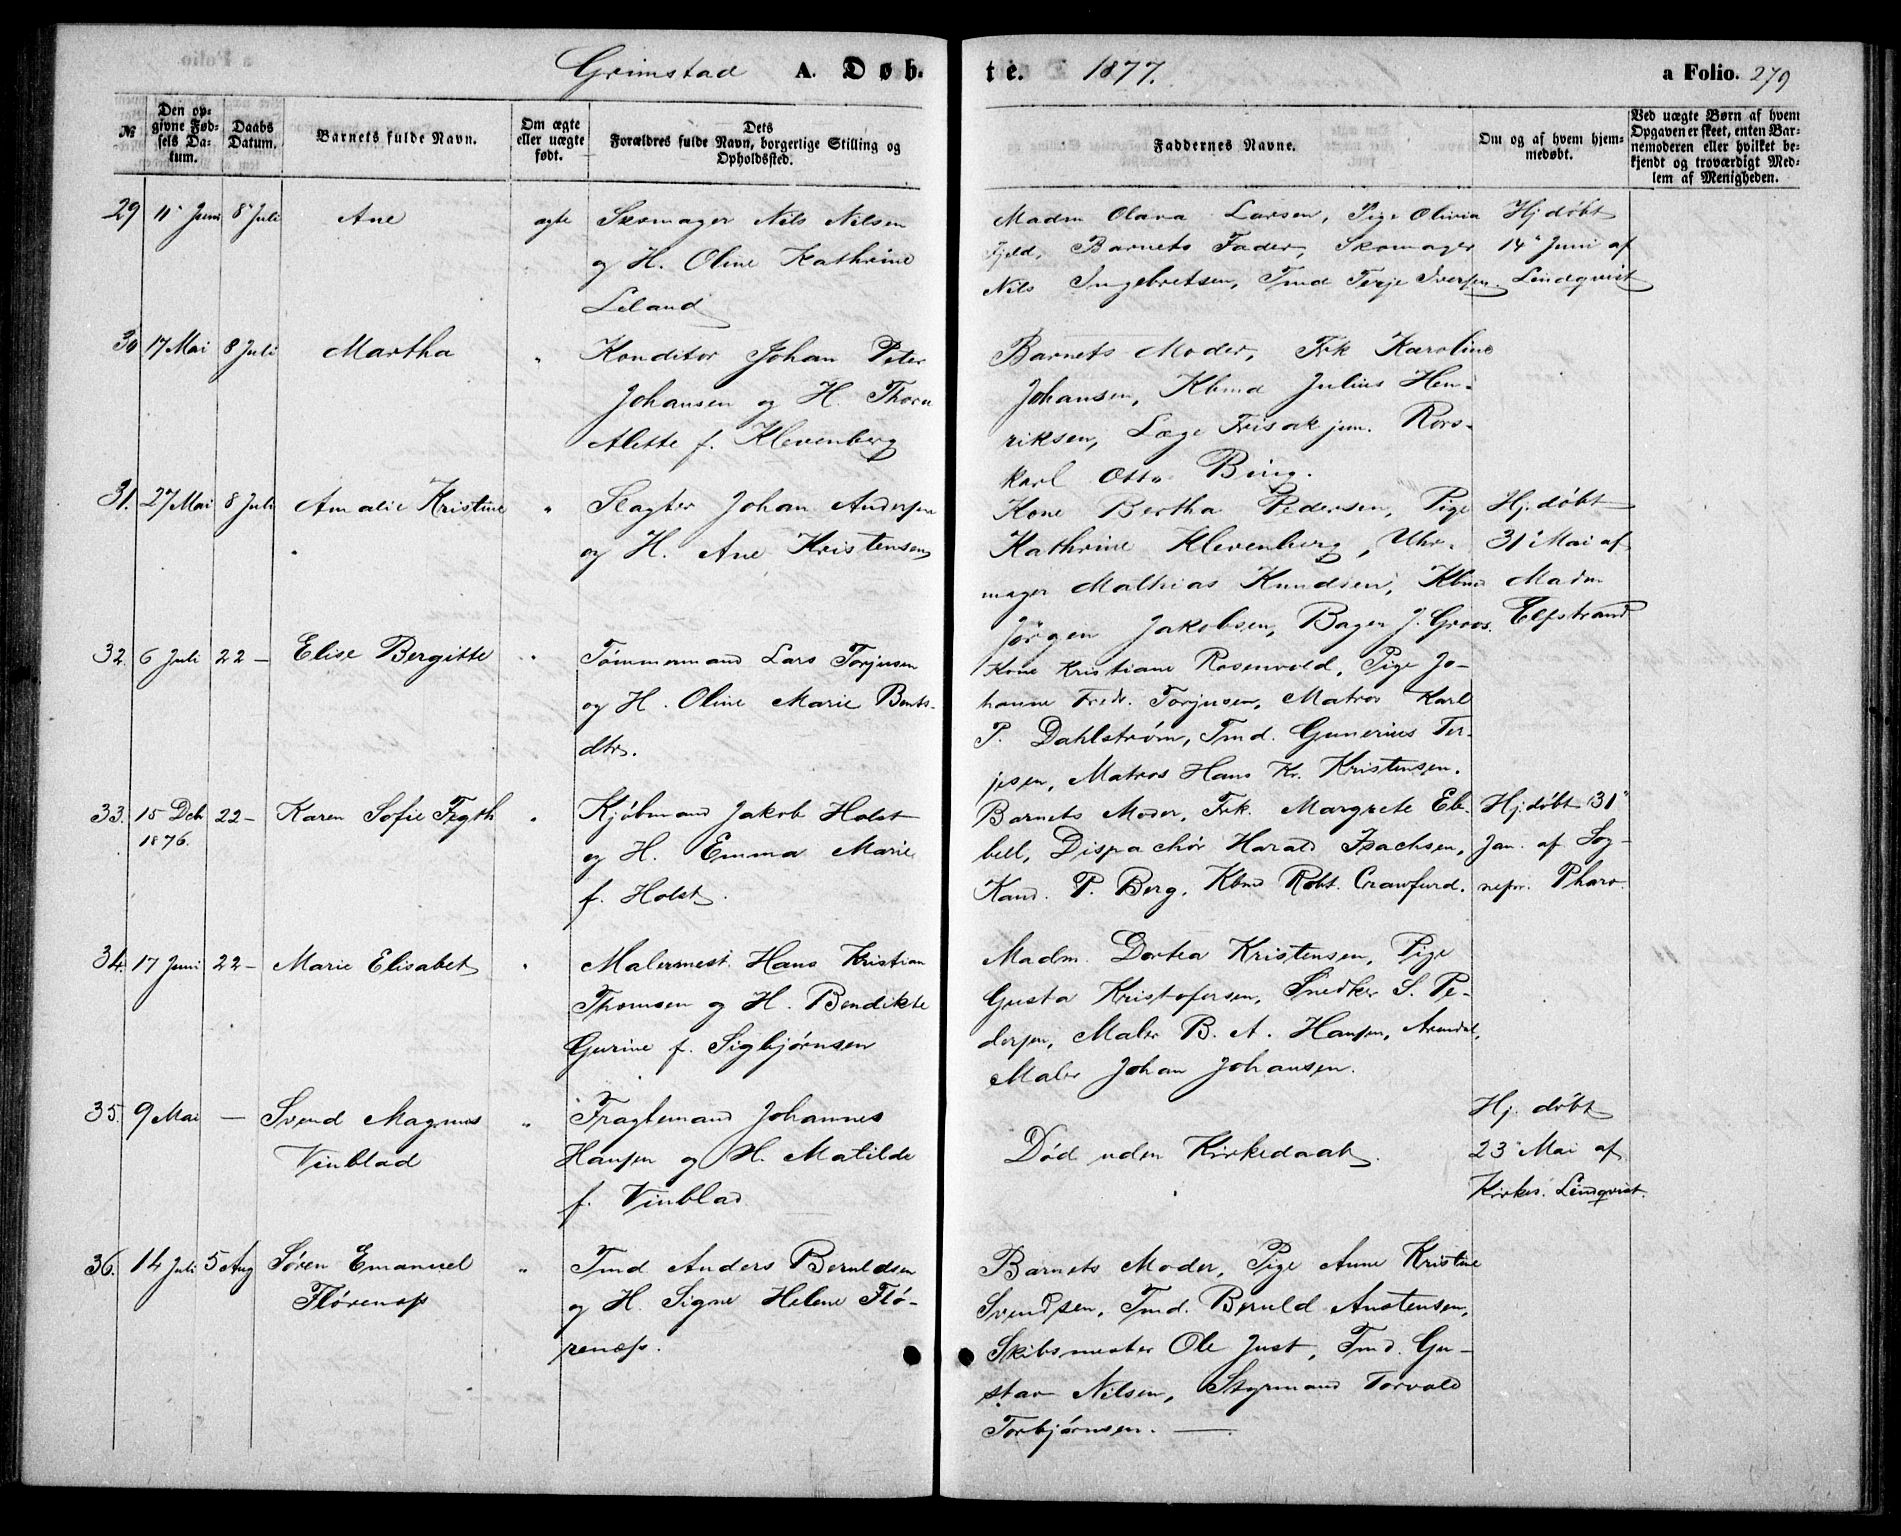 Grimstad A. Døb-te. 1877. a Folio. 279
№
Den op-
givne Fød-
sels Da-
tum.
Daabs
Datum.
Barnets fulde Navn.
Om ægte
eller uægte
født.
Dets
Forældres fulde Navn, borgerlige Stilling og
Opholdssted.
Faddernes Navne.
Om og af hvem hjem-
medøbt.
Ved uægte Børn af hvem
Opgaven er skeet, enten Bar-
nemoderen eller hvilket be-
kjendt og troværdigt Med-
lem af Menigheden.
29 11" Juni 8" Juli Ane ægte Skomager Nils Nilsen
og H. Oline Kathrine
Leland
Madm Olava Larsen, Pige Olivia
Fjeld, Barnets Fader, Skomager
Nils Ingebretsen, Tmd Terje Iversen.
Hj døbt
14" Juni af
Lindqvist
30 17 Mai 8 Juli Martha " Konditor Johan Peter
Johansen og H. Thora
Alette f. Klevenberg
Barnets Moder, Frk Karoline
Johansen, Kbmd Julius Hen-
riksen, Læge Frisak jun. Rors-
karl Otto Bing.
31. 27 Mai 8 Juli Amalie Kristine " Slagter Johan Andersen
og H. Ane Kristensen
Kone Bertha Pedersen, Pige
Kathrine Klevenberg, Uhr-
mager Mathias Knudsen, Kbmd
Jørgen Jakobsen, Bager J. Groos.
Hj. døbt
31" Mai af
Madm
Elfstrand
32. 6 Juli 22 – Elise Bergitte " Tømmermand Lars Torjusen
og H. Oline Marie Bents-
dtr.
Kone Kristiane Rosenvold, Pige Jo-
hanne Fredr. Torjusen, Matros Karl
P. Dahlstrøm, Tmd. Gunerius Ter-
jesen, Matros Hans Kr. Kristensen.
33. 15 Dcb 22 – Karen Sofie Fegth " Kjøbmand Jakob Holst
1876.
og H. Emma Marie
f. Holst.
Barnets Moder, Frk. Margrete Eb-
bell, Dispachør Harald Isachsen,
Kand. P. Berg, Kbmd Robt. Crawfurd.
Hj. døbt 31"
Jan. af Sog-
nepr. Pharo.
34. 17 Juni 22 – Marie Elisabet " Malermest. Hans Kristian
Thomsen og H. Bendikte
Gurine f. Sigbjørnsen
Madm. Dortea Kristensen, Pige
Gusta Kristofersen, Snedker S. Pe-
dersen, Maler B. A. Hansen, Arendal,
Maler Johan Johansen.
35. 9 Mai – Svend Magnus " Fragtemand Johannes
Vinblad
Hansen og H. Matilde
f. Vinblad
Død uden Kirkedaab.
Hj. døbt
23" Mai af
Kirkes. Lindqvist.
36. 14 Juli 5 Aug Søren Emanuel " Tmd Anders Beruldsen
Florenæs
og H. Signe Helene Flø-
renæs.
Barnets Moder, Pige Anne Kristine
Svendsen, Tmd. Beruld Austensen,
Skibsmester Ole Just, Tmd. Gu-
stav Nilsen, Styrmand Torvald
Torbjørnsen. —